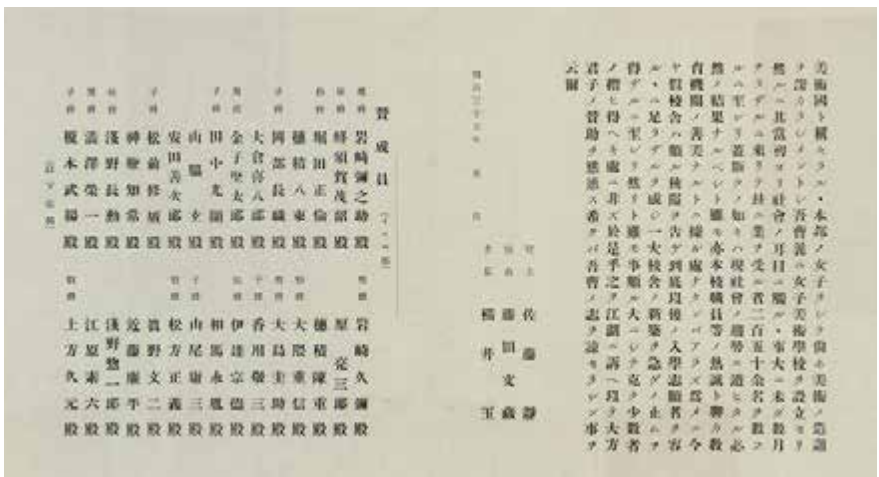 美術國ト稱セラルヽ本邦ノ女子ヲシテ尚ホ美術ノ造詣
ヲ深カラシメントシ吾曹曩ニ女子美術學校ヲ設立セリ
然ルニ其當初ヨリ社會ノ耳目ニ觸ルヽ事大ニ未ダ數月
ナラザルニ來リテ共ニ業ヲ受クル者二百五十余名ヲ數フ
ルニ至レリ蓋斯クノ如キハ現社會ノ趨勢ニ適ヒタル必
然ノ結果ナルベシト雖モ亦本校職員等ノ熱誠ト聊カ敎
育機關ノ善美ナルトニ據ル處ナクンバアラズ爲メニ今
ヤ假校舍ハ頗ル狹隘ヲ告ゲ到底後ノ入學志願者ヲ容
ルヽニ足ラザルヲ成シ一大校舍ノ新築ヲ急グノ止ムヲ
得ザルニ至レリ然リト雖モ事頗ル大ニシテ克ク少數者
ノ擔ヒ得ベキ處ニ非ズ於是乎之ヲ江湖ニ訴ヘ以テ大方
君子ノ贊助ヲ希クバ吾曹ノ志ヲ諒セラレン事ヲ
云爾
明治三十五年 月 日
校主 佐藤靜
藤田文藏
橫井玉
贊成員
男爵 岩崎彌之助殿
侯爵 蜂須賀茂韶殿
伯爵 堀田正倫殿
穗積八束殿
子爵 岡部長職殿
大倉喜八郎殿
男爵 金子堅太郎殿
子爵 田中光顯殿
山脇玄殿
安田善次郎殿
子爵 松前修廣殿
神鞭知常殿
侯爵 淺野長勳殿
男爵 澁澤榮一殿
子爵 榎本武揚殿
男爵 岩崎久彌殿
原亮三郎殿
穗積陳重殿
伯爵 大隈重信殿
男爵 大鳥圭助殿
子爵 香川敬三殿
伯爵 伊達宗德殿
相馬永胤殿
子爵 山尾庸三殿
伯爵 松方正義殿
眞野文二殿
近藤廉平殿
淺野惣一郎殿
江原素六殿
子爵 土方久元殿